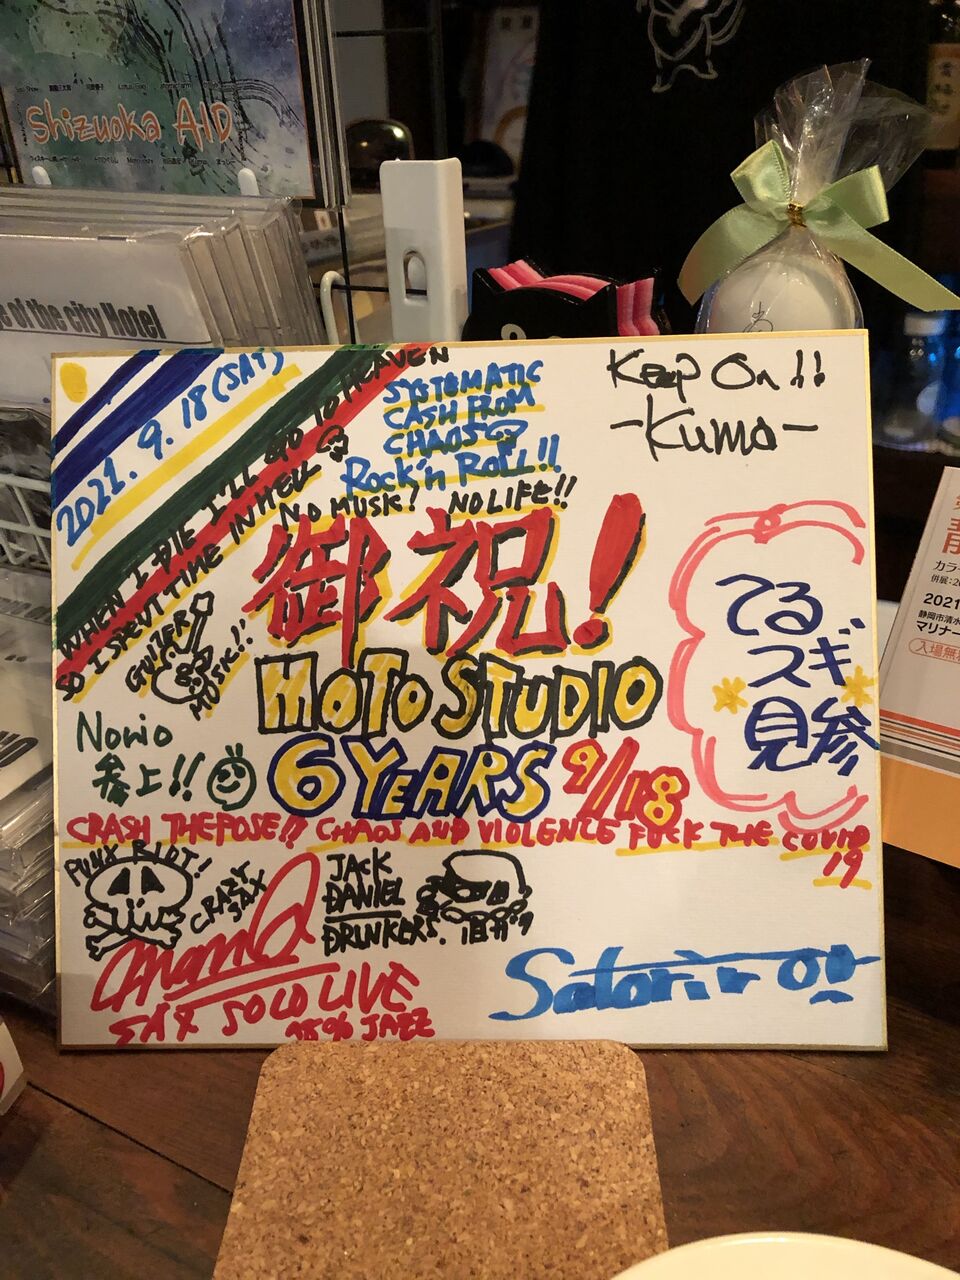 Shizuoka AID
e of the city Hotel
2021. 9. 18 (SAT)
WHEN I DIE I'LL GO TO HEAVEN
SO I SPENT TIME IN HELL
SYSTEMATIC
CASH FROM
CHAOS
Rock'n Roll!!
NO MUSIC! NO LIFE!!
Keep On!!
-Kuma-
御祝!
MOTO STUDIO
6 YEARS 9/18
てる
ギ
ス
見参
MUSIC!!
Nowio
参上!!
CRASH THE POSE!! CHAOS AND VIOLENCE FUCK THE COVID
19
PUNX RIOT!
CRAZY
SAX
JACK
DANIEL
DRUNKERS.
SAX SOLO LIVE
JAZZ
カラ
2021
静岡市清水
マリナー
入場無